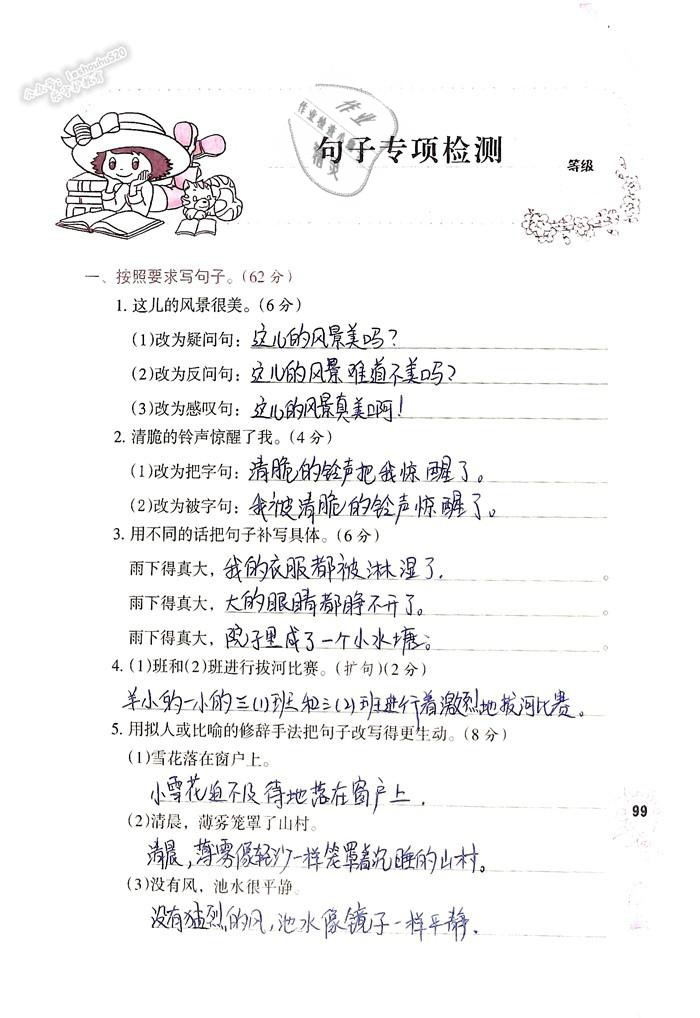 公众号: lzshouhu520
公众守护教育
作业
作业检查小
精灵
句子专项检测
等级
一、按照要求写句子。(62 分)
1. 这儿的风景很美。(6 分)
(1)改为疑问句：这儿的风景美吗？
(2)改为反问句：这儿的风景难道不美吗？
(3)改为感叹句：这儿的风景真美啊！
2. 清脆的铃声惊醒了我。(4 分)
(1)改为把字句：清脆的铃声把我惊醒了。
(2)改为被字句：我被清脆的铃声惊醒了。
3. 用不同的话把句子补写具体。(6 分)
雨下得真大，我的衣服都被淋湿了. 。
雨下得真大，大的眼睛都睁不开了。 。
雨下得真大，院子里成了一个小水塘。 。
4. (1)班和(2)班进行拔河比赛。(扩句)(2 分)
羊小的一小的三(1)班和三(2)班进行着激烈地拔河比赛。
5. 用拟人或比喻的修辞手法把句子改写得更生动。(8 分)
(1)雪花落在窗户上。
小雪花迫不及待地落在窗户上.
(2)清晨，薄雾笼罩了山村。
清晨，薄雾像轻沙一样笼罩着沉睡的山村。
(3)没有风，池水很平静。
没有猛烈的风，池水像镜子一样平静.
99